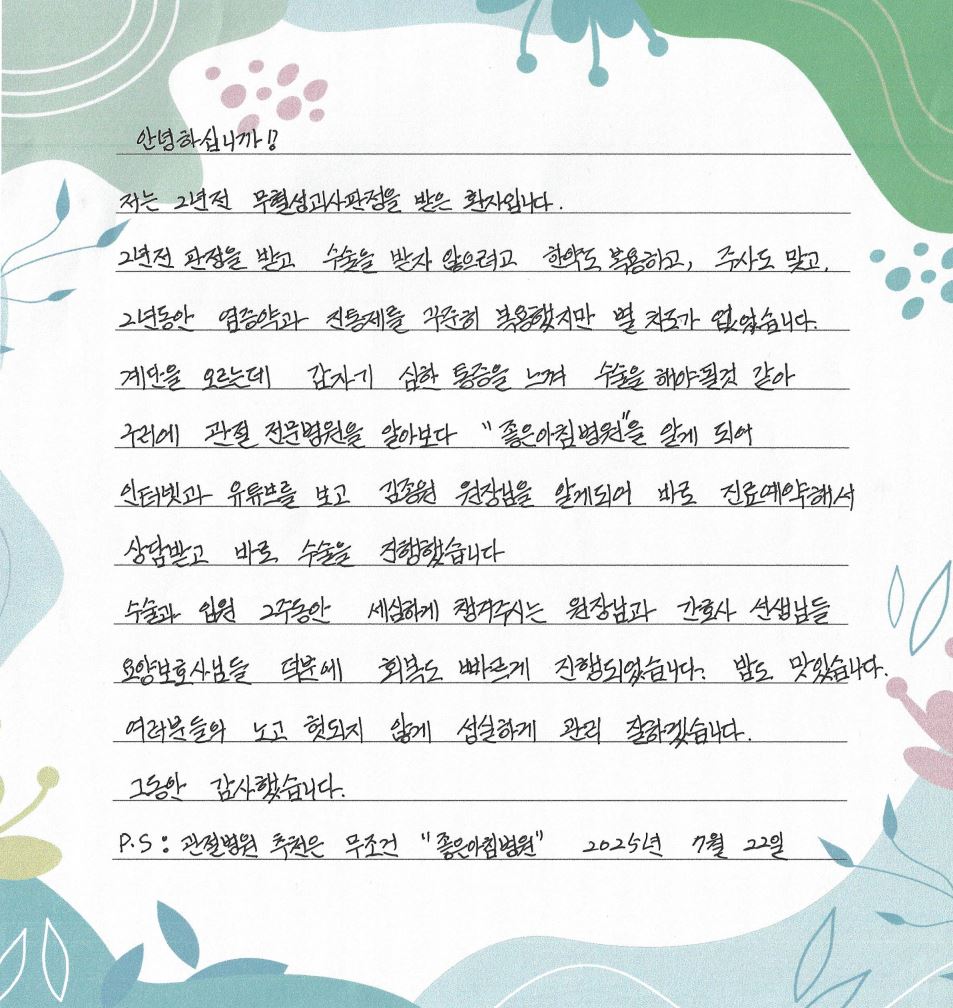 안녕하십니까!?
저는 2년전 무혈성괴사판정을 받은 환자입니다.
2년전 판정을 받고 수술을 받자 않으려고 한약도 복용하고, 주사도 맞고,
2년동안 염증약과 진통제를 꾸준히 복용했지만 별 차도가 없었습니다.
계단을 오르는데 갑자기 심한 통증을 느껴 수술을 해야될것 같아
구리에 관절 전문병원을 알아보다 "좋은아침병원"을 알게 되어
인터넷과 유튜브를 보고 김종원 원장님을 알게되어 바로 진료예약해서
상담받고 바로 수술을 진행했습니다
수술과 입원 2주동안 세심하게 챙겨주시는 원장님과 간호사 선생님들
요양보호사님들 덕분에 회복도 빠르게 진행되었습니다. 밥도 맛있습니다.
여러분들의 노고 헛되지 않게 성실하게 관리 잘하겠습니다.
그동안 감사했습니다.
P.S : 관절병원 추천은 무조건 "좋은아침병원" 2025년 7월 22일